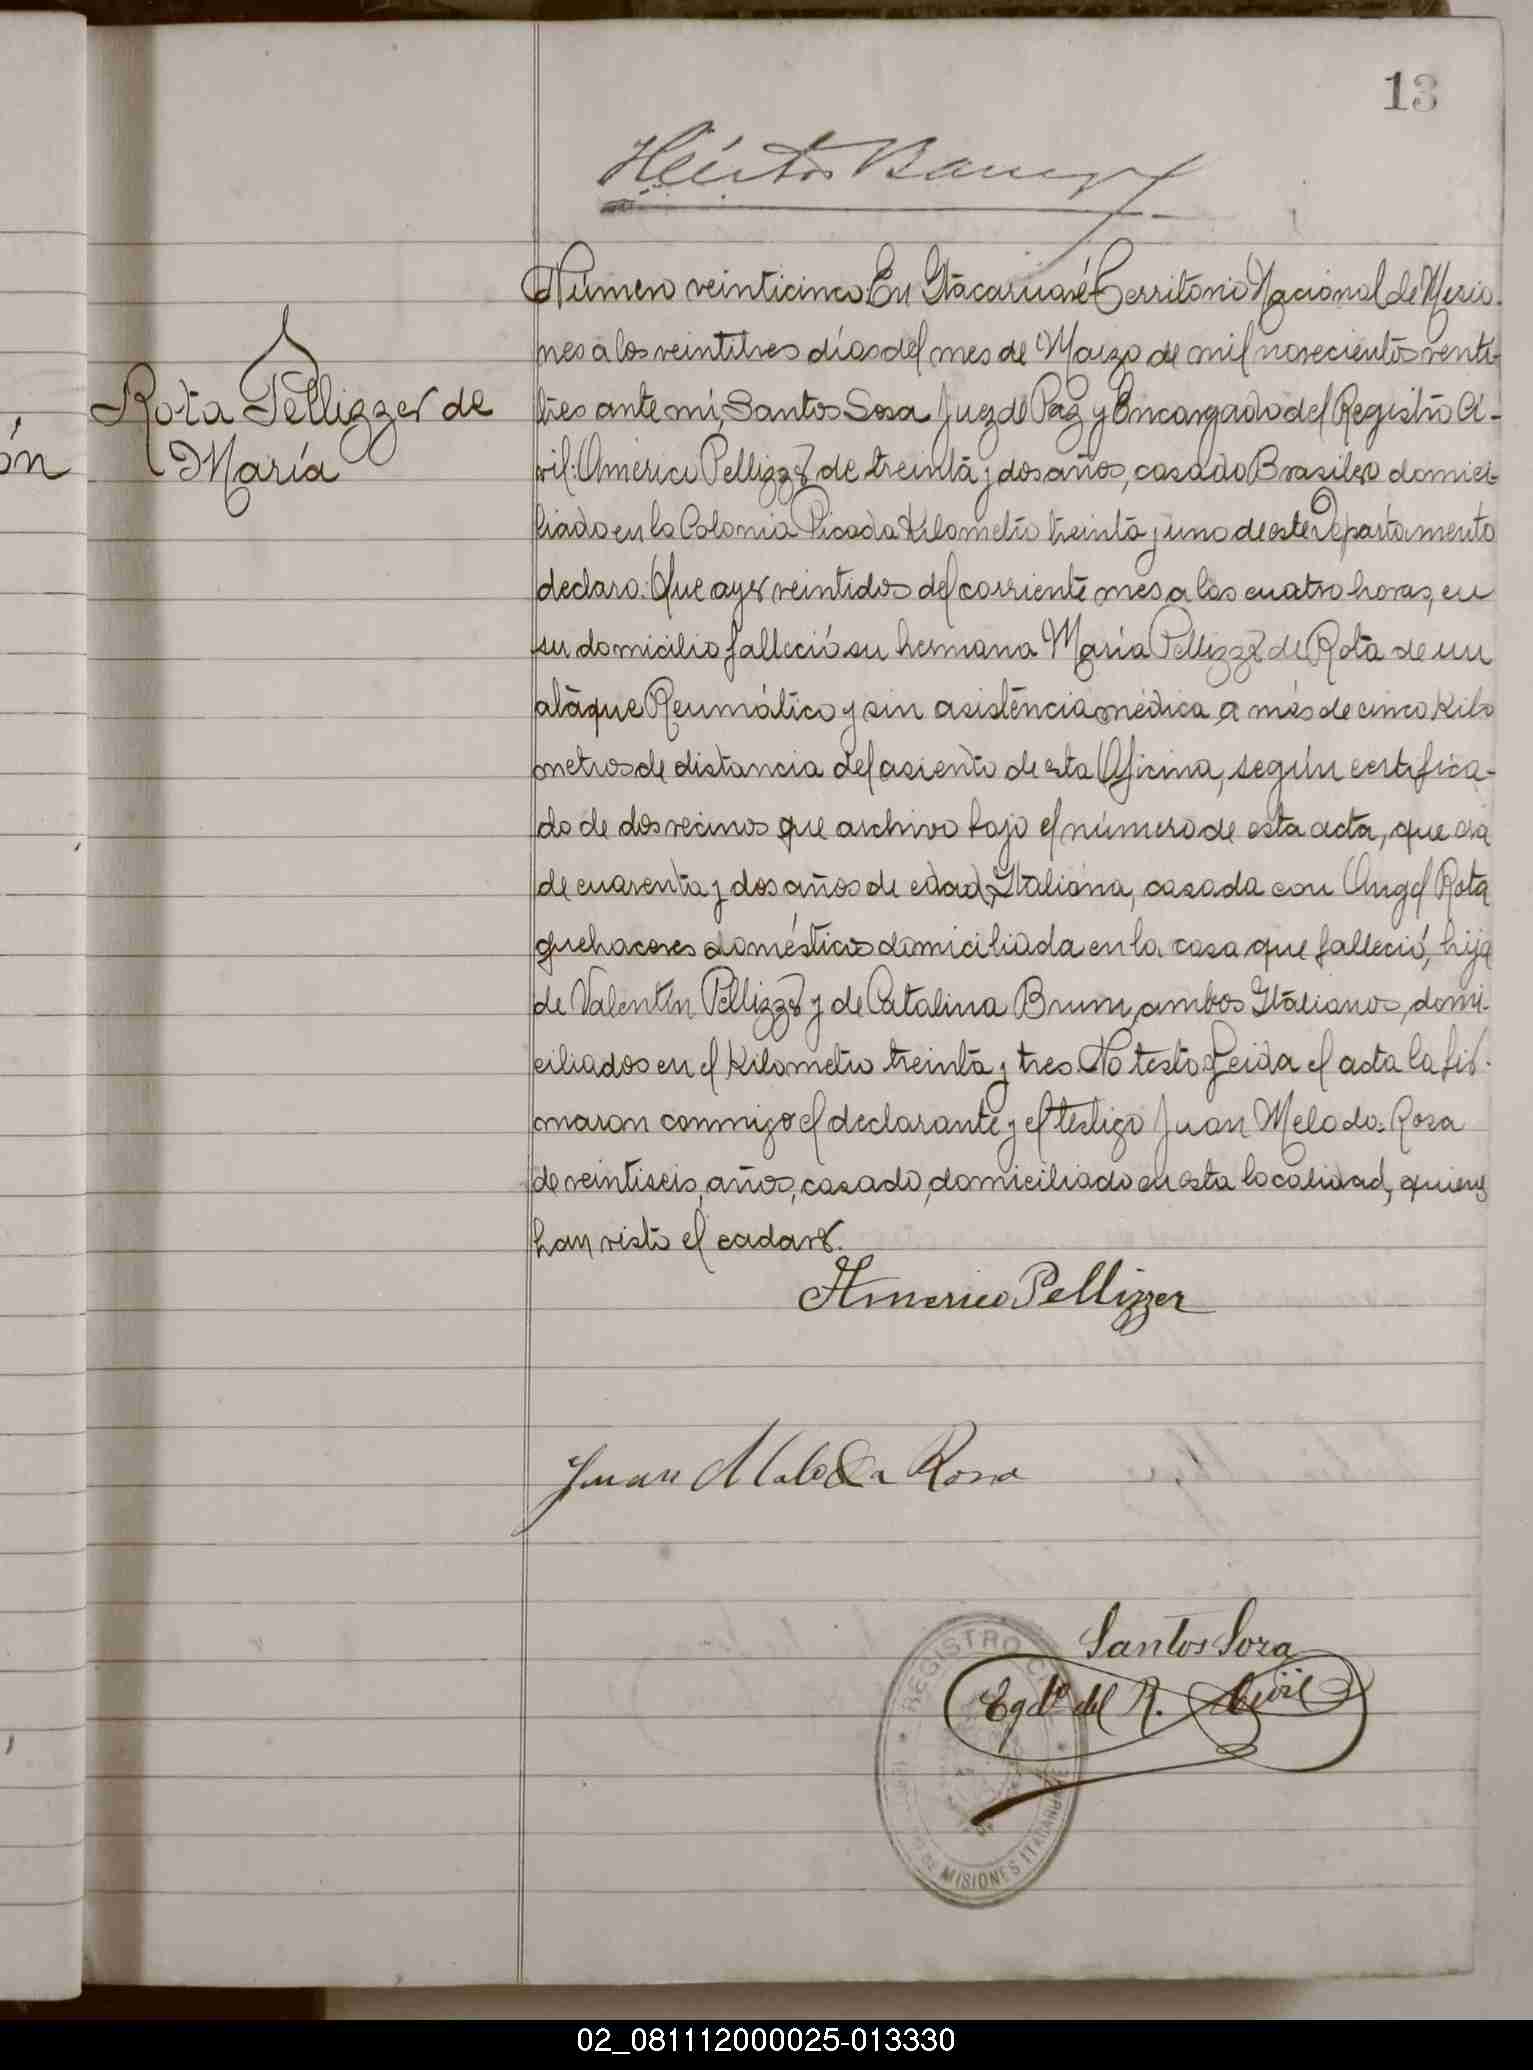 13
Héctor
Número veinticinco: En Itacaruaré Territorio Nacional de Misio-
nes a los veintitres días del mes de Marzo de mil novecientos venti-
tres ante mí, Santos Sosa Juez de Paz y Encargado del Registro Ci-
Rota Pellizzer de
María
ón
vil: Américo Pellizzer de treinta y dos años, casado Brasilero domici-
liado en la Colonia Picada Kilometro treinta y uno de este Departamento
declaro: Que ayer veintidos del corriente mes a las cuatro horas, en
su domicilio falleció su hermana María Pellizzer de Rota de un
ataque Reumático y sin asistencia médica a más de cinco Kilo
metros de distancia del asiento de esta Oficina, según certifica-
do de dos vecinos que archivo bajo el número de esta acta, que era
de cuarenta y dos años de edad, Italiana, casada con Angel Rota
quehaceres domésticos domiciliada en la casa que falleció, hija
de Valentín Pellizzer y de Catalina Brum, ambos Italianos, domi-
ciliados en el Kilometro treinta y tres. No testo Leida el acta la fir-
maron conmigo el declarante y el testigo Juan Melo da Rosa
de veintiseis, años, casado, domiciliado en esta localidad, quienes
han visto el cadaver.
Americo Pellizzer
Juan Melo da Rosa
Santos Sosa
Egdo del R. Civil
REGISTRO CIVIL
DE MISIONES ITACARUARE
02_081112000025-013330